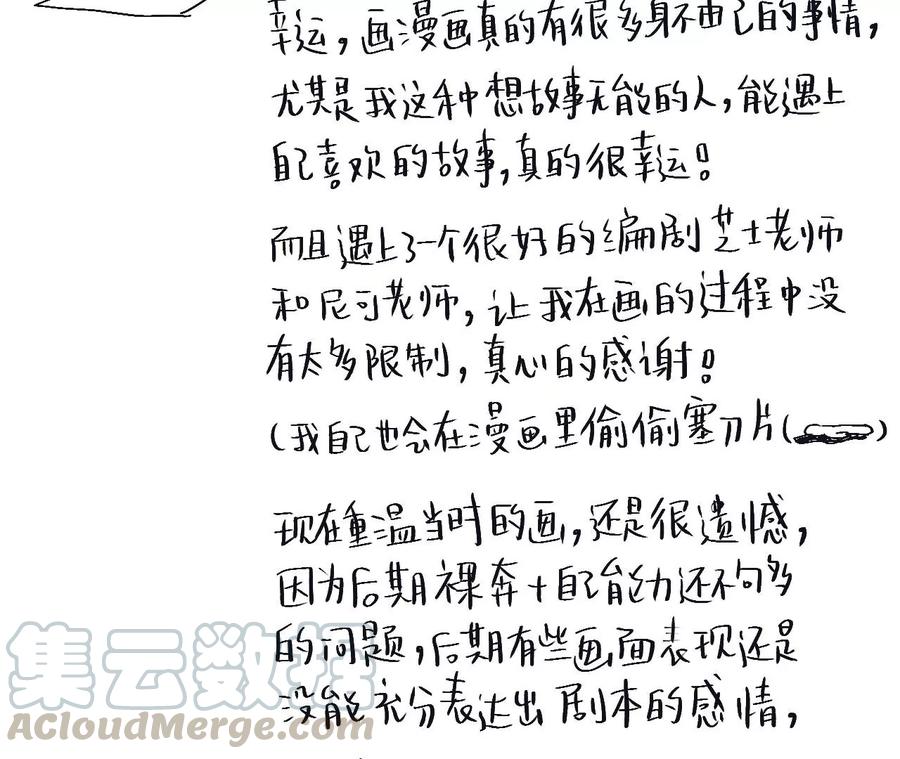 幸运，画漫画真的有很多身不由己的事情，
尤其是我这种想故事无能的人，能遇上
自己喜欢的故事，真的很幸运！
而且遇上了一个很好的编剧芝士老师
和尼可老师，让我在画的过程中没
有太多限制，真心的感谢！
（我自己也会在漫画里偷偷塞刀片（
现在重温当时的画，还是很遗憾，
因为后期裸奔+自己能力还不够多
的问题，后期有些画面表现还是
没能充分表达出剧本的感情，
集云数据
ACloudMerge.com